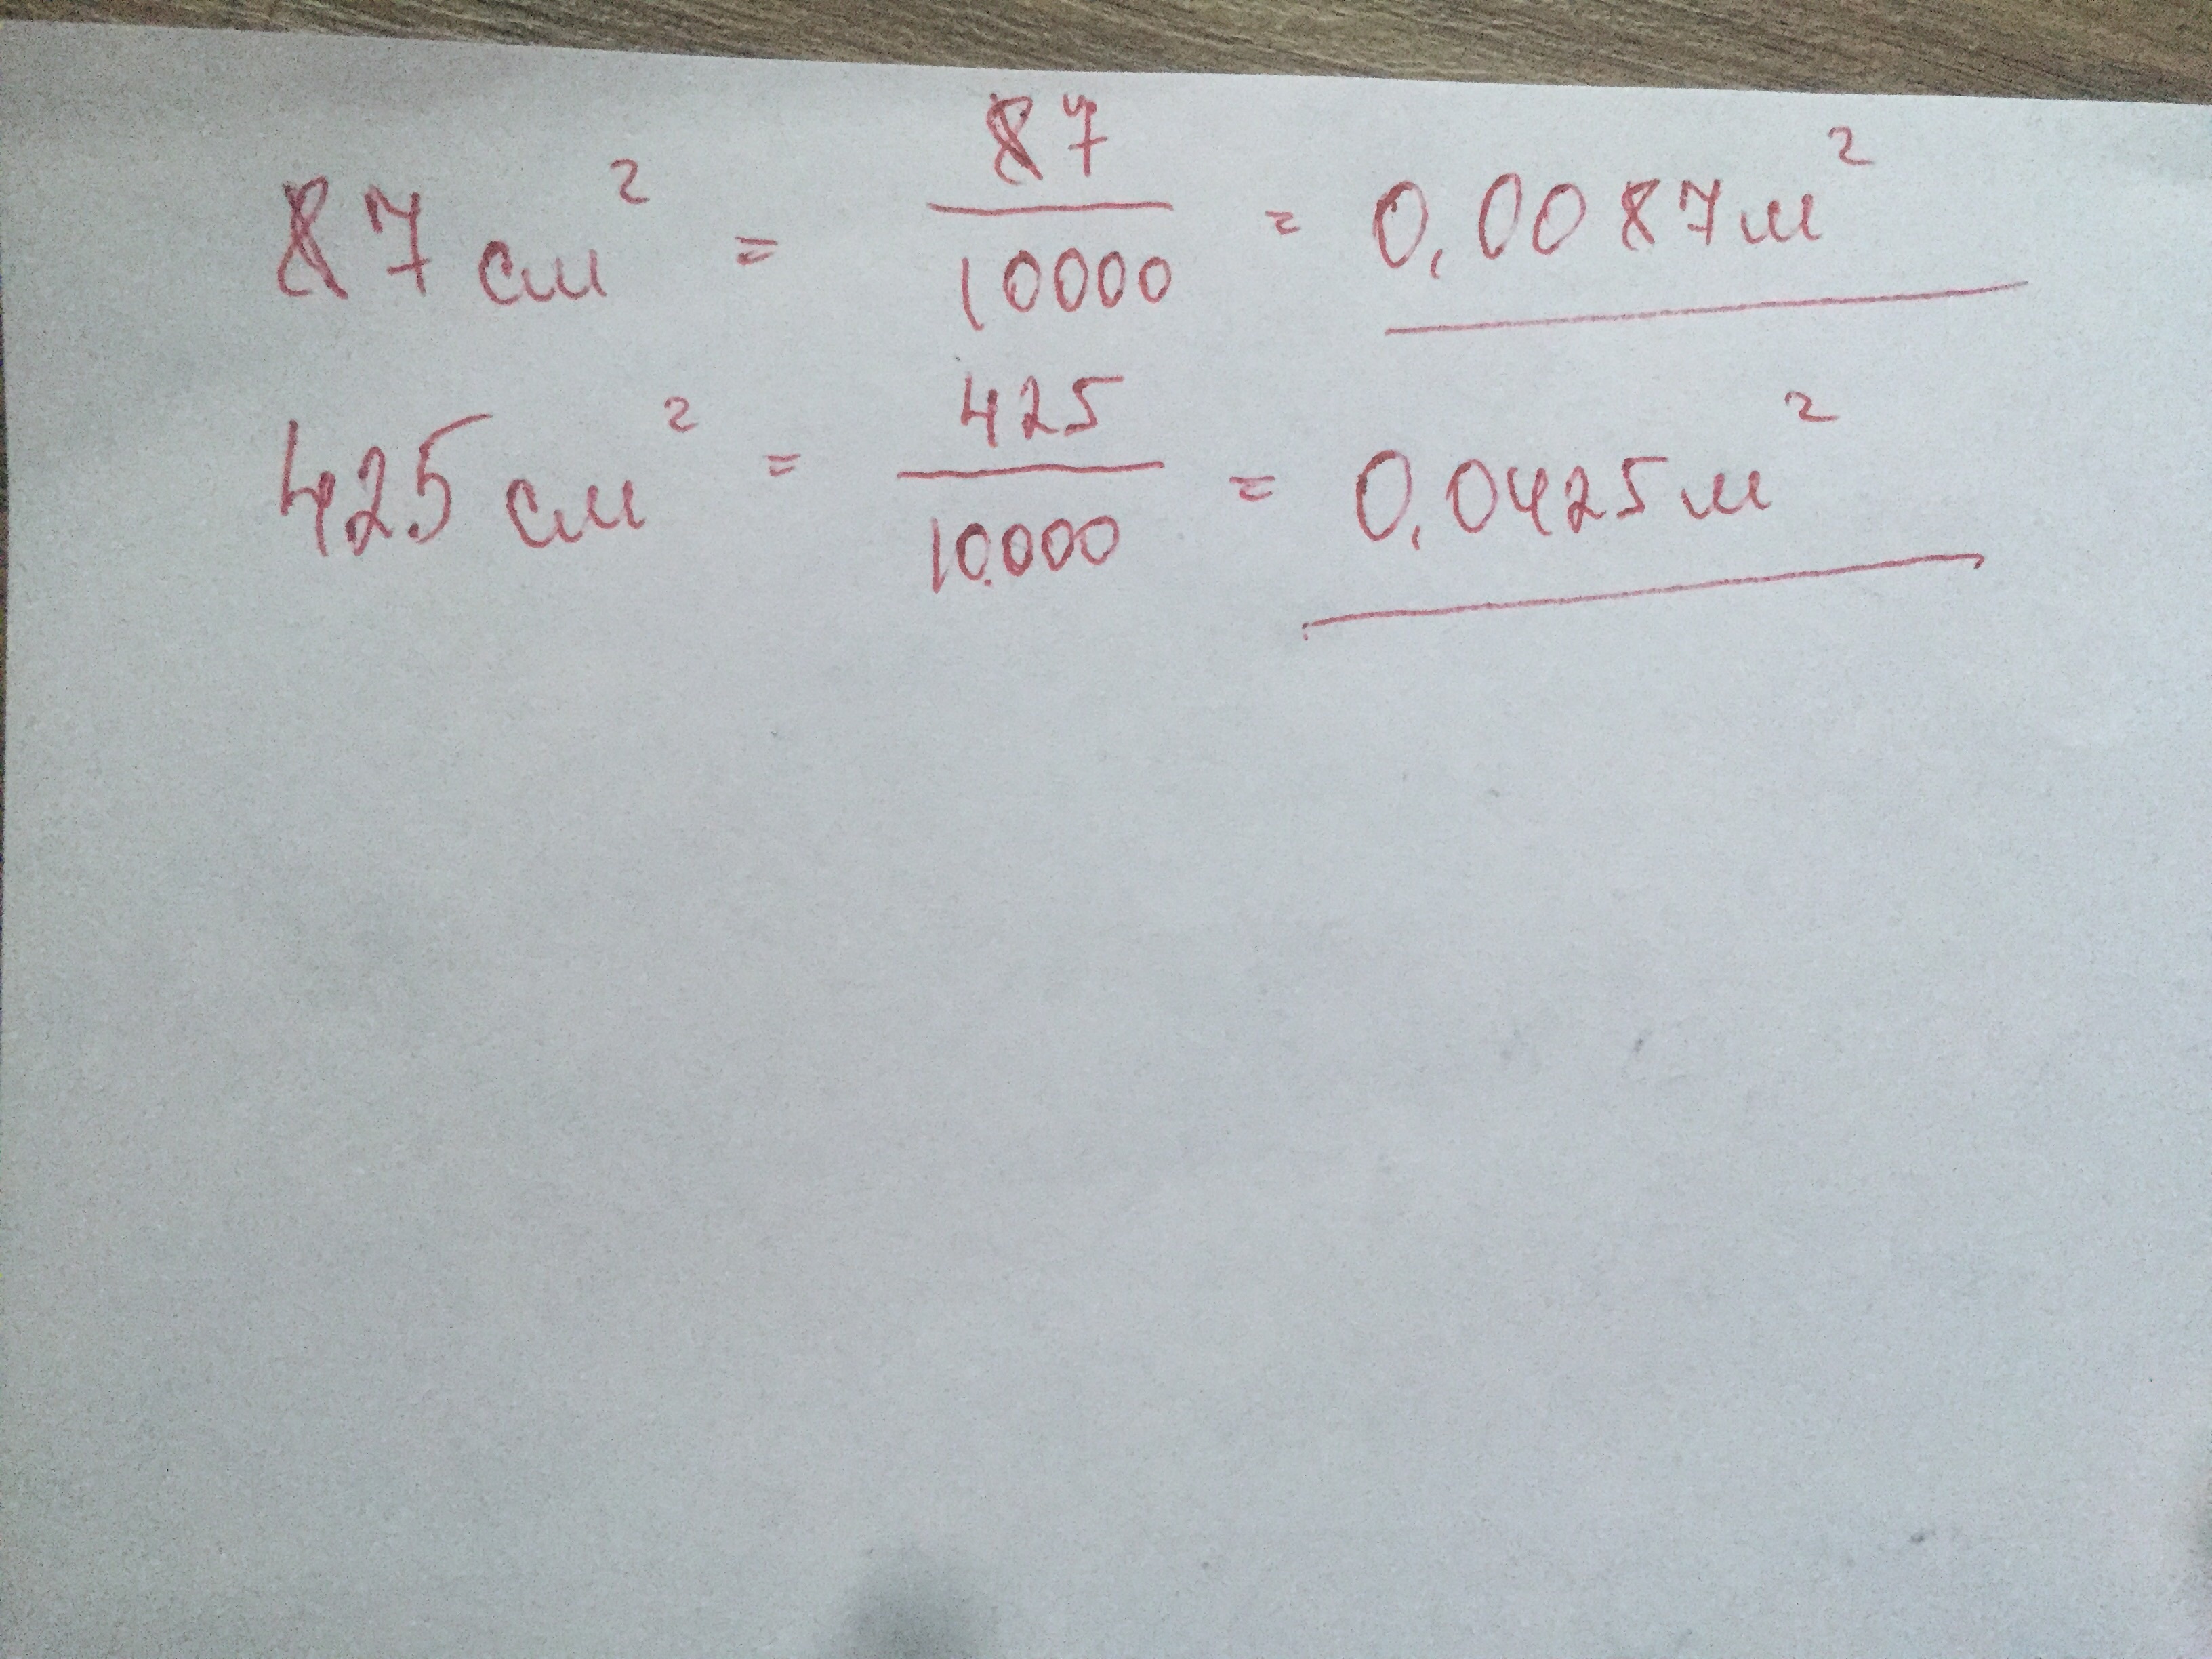 87 см² = 87/10000 = 0,0087 м²
425 см² = 425/10000 = 0,0425 м²